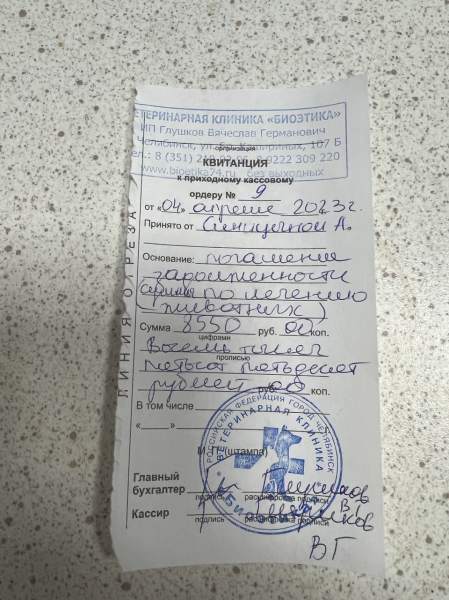 ВЕТЕРИНАРНАЯ КЛИНИКА «БИОЭТИКА»
ИП Глушков Вячеслав Германович
Челябинск, ул. Бр. Кашириных, 107 Б
тел.: 8 (351) 9222 309 220
www.bioetika74.ru без выходных
организация
КВИТАНЦИЯ
к приходному кассовому
ордеру № 9
от «04» апреля 2023г.
Принято от Синицыной А.
Основание: погашение
заролженности
по лечению
(животных)
Сумма 8550 руб. 00 коп.
цифрами
Восемь тысяч
прописью
пятьсот пятьдесят
рублей руб. 00 коп.
В том числе
« »
М.П. (штампа)
Главный
бухгалтер Глушков
подпись расшифровка подписи
В
Кассир Глушков
подпись расшифровка подписи
ВГ
ЛИНИЯ ОТРЕЗА
РОССИЙСКАЯ ФЕДЕРАЦИЯ ГОРОД ЧЕЛЯБИНСК
ВЕТЕРИНАРНАЯ КЛИНИКА